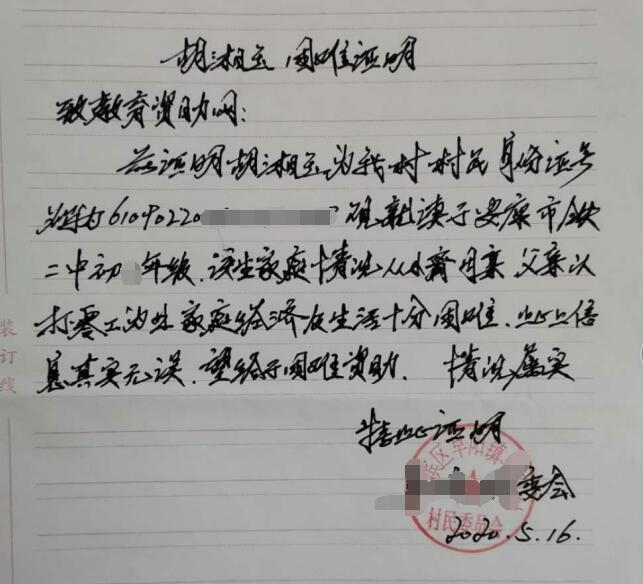 胡湘玉 困难证明
致教育资助网:
兹证明胡湘玉为我村村民身份证号
6109022 现就读于安康市铁
二中初 年级. 该生家庭情况从小离母亲 父亲以
打零工为生 家庭经济及生活十分困难. 此上信
息真实无误. 望给予困难资助. 情况属实
特此证明
委会
2020.5.16.
滨区早阳镇
村民委员会
装订线